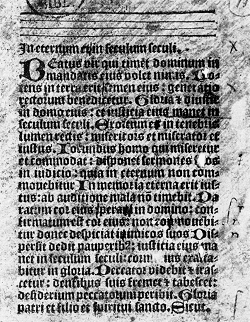 In eternum et in seculum seculi.
Beatus vir qui timet dominum in
mandatis eius volet nimis. Po
tens in terra erit semen eius: generatio
rectorum benedicetur. Gloria & diuitie
in domo eius: et iusticia eius manet in
seculum seculi. Exortum est in tenebris
lumen rectis: misericors et miserator et
iustus. Iocundus homo qui miseretur
et commodat: disponet sermones suos
in iudicio: quia in eternum non com
mouebitur. In memoria eterna erit ius
tus: ab auditione mala nō timebit. Pa
ratum cor eius sperare in domino: con
firmatum est cor eius: non commouebi
tur donec despiciat inimicos suos. Dis
persit dedit pauperib2: iusticia eius ma
net in seculum seculi: cornu eius exal
tabitur in gloria. Peccator videbit & iras
cetur: dentibus suis fremet & tabescet:
desiderium peccatorum peribit. Gloria
patri et filio et spiritui sancto. Sicut.